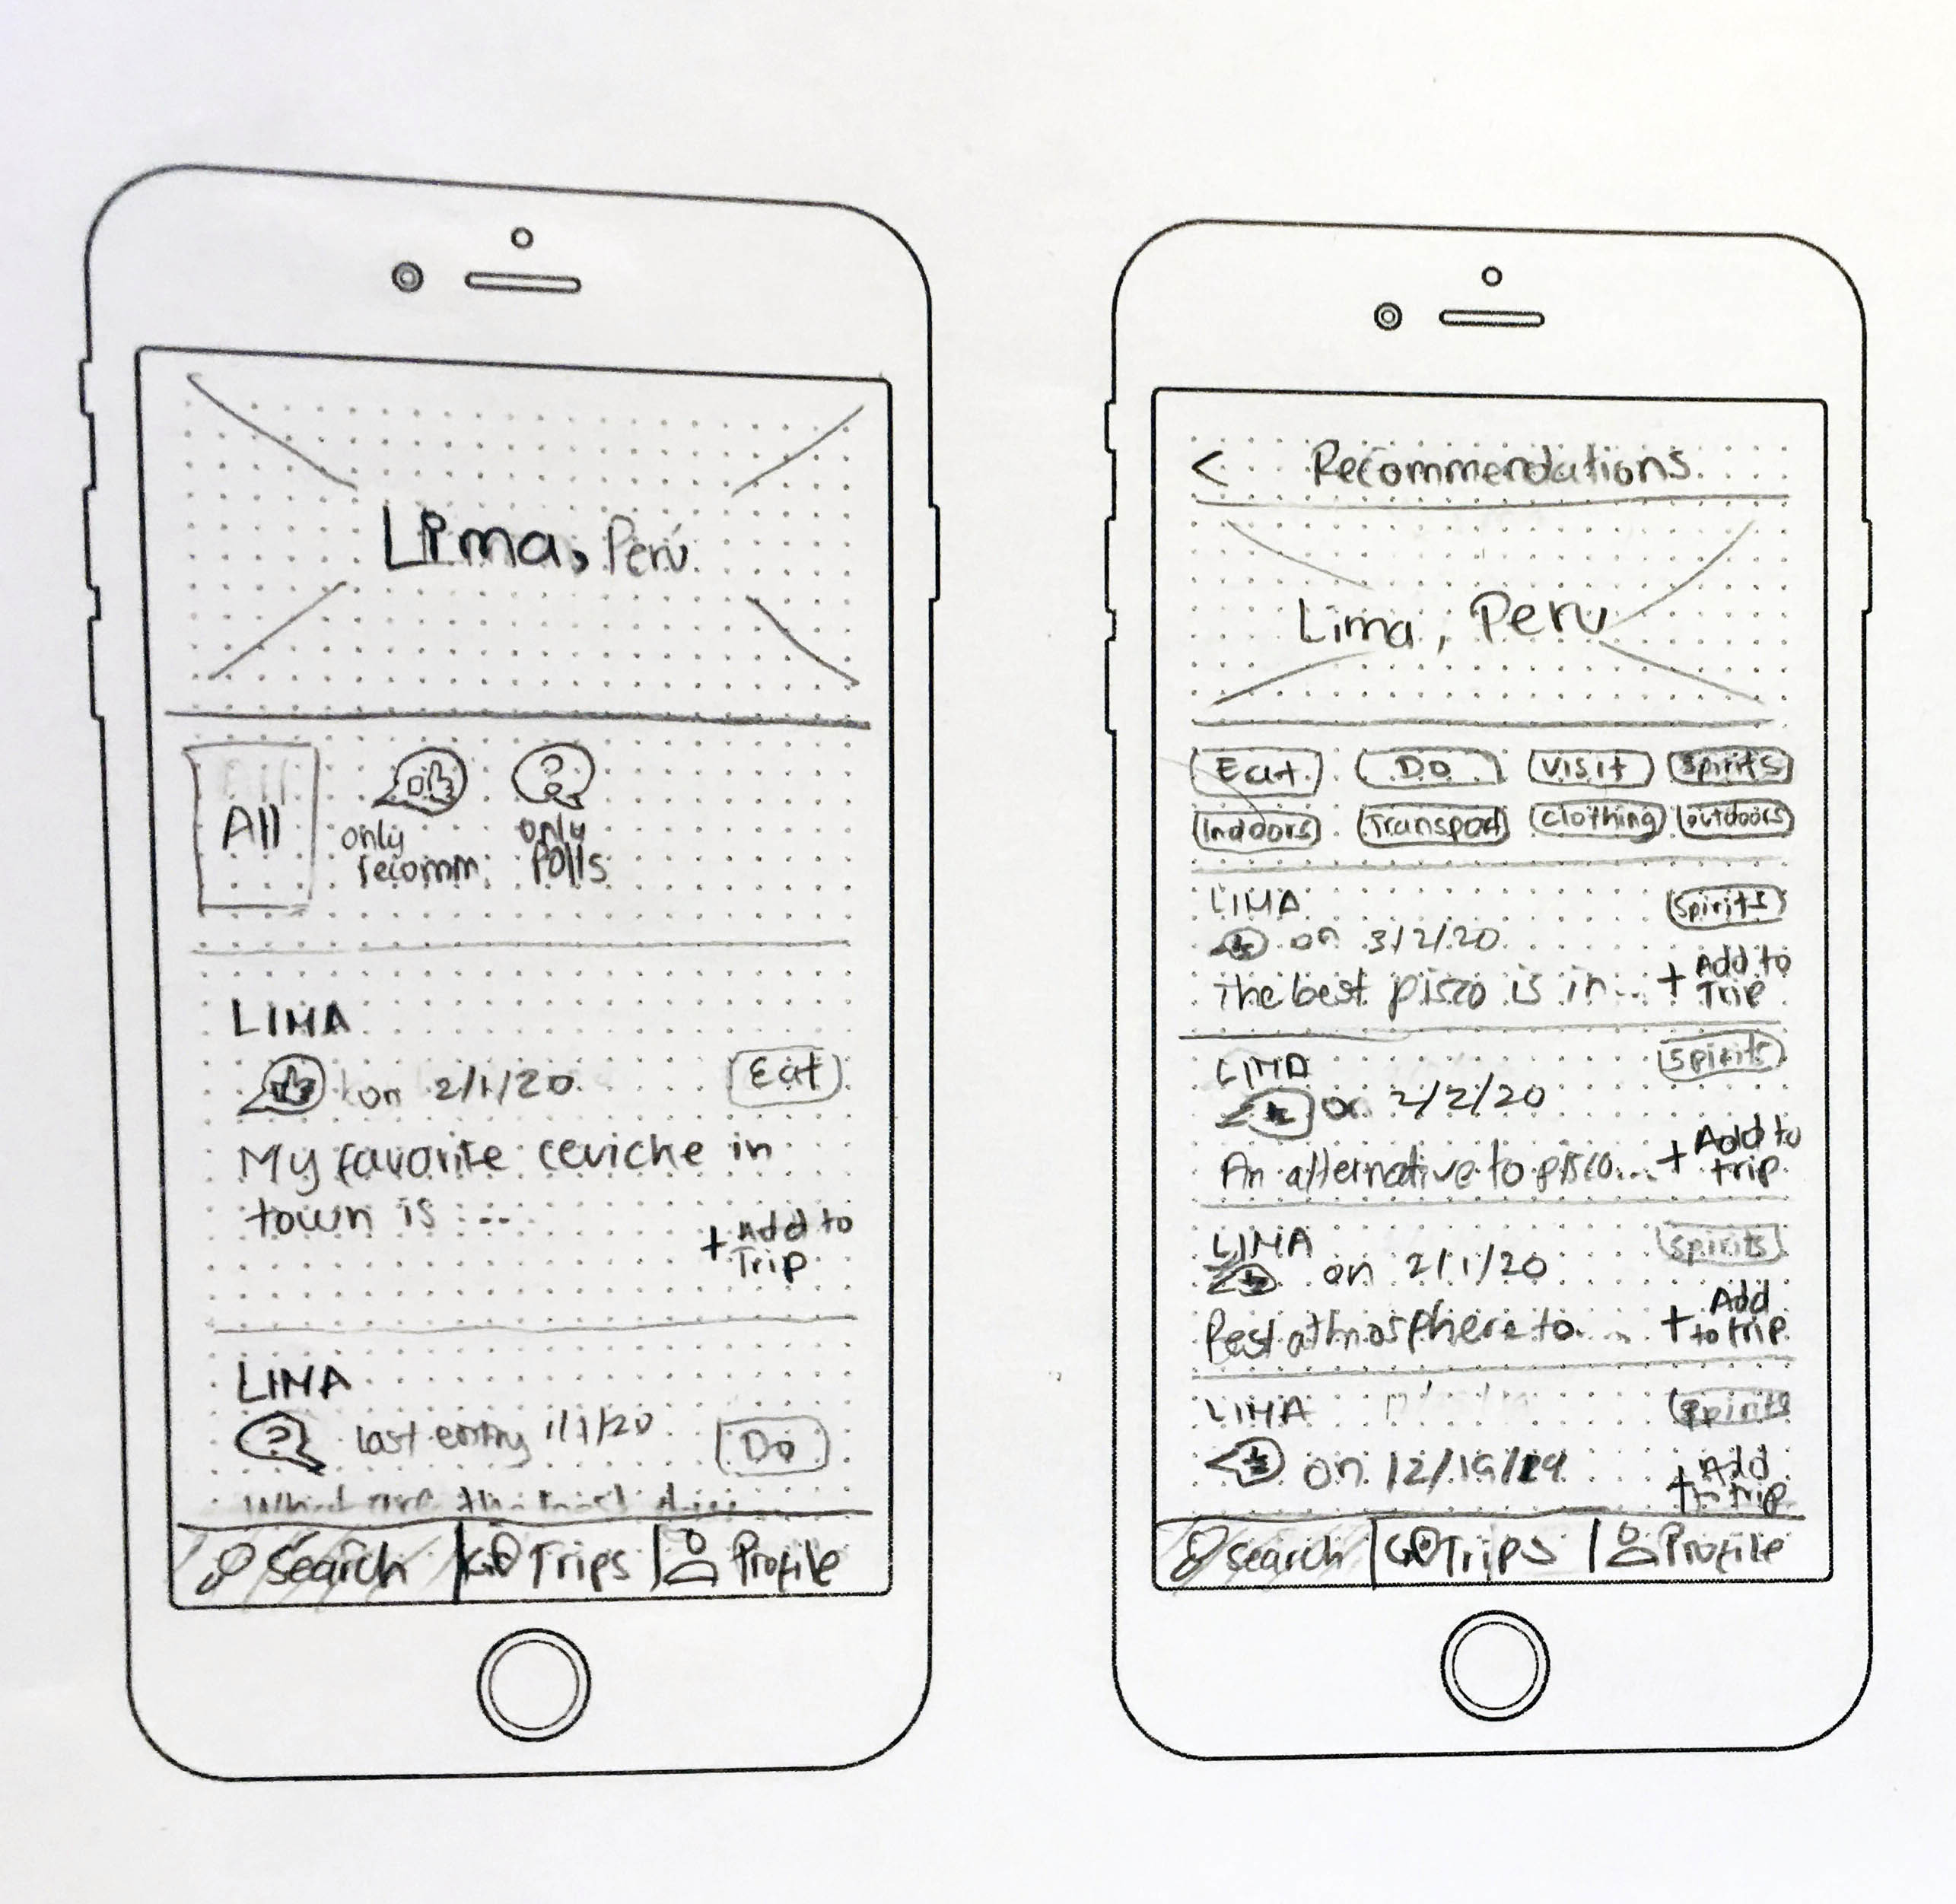 Lima, Perú
All
only recomm.
only Polls
LIMA
on 2/1/20
Eat
My favorite ceviche in
town is ...
+ Add to
Trip
LIMA
last entry 1/1/20
Do
What are the
Search
Trips
Profile
< Recommendations
Lima, Peru
Eat Do Visit Spirits
Indoors Transport clothing outdoors
LIMA
Spirits
on 3/2/20
The best pisco is in... + Add to
Trip
LIMA
Spirits
on 2/2/20
An alternative to pisco... + Add to
trip
LIMA
Spirits
on 2/1/20
Best athmosphere to.... + Add
to trip
LIMA
Spirits
on 12/19/19
+ Add
to trip
Search
Trips
Profile